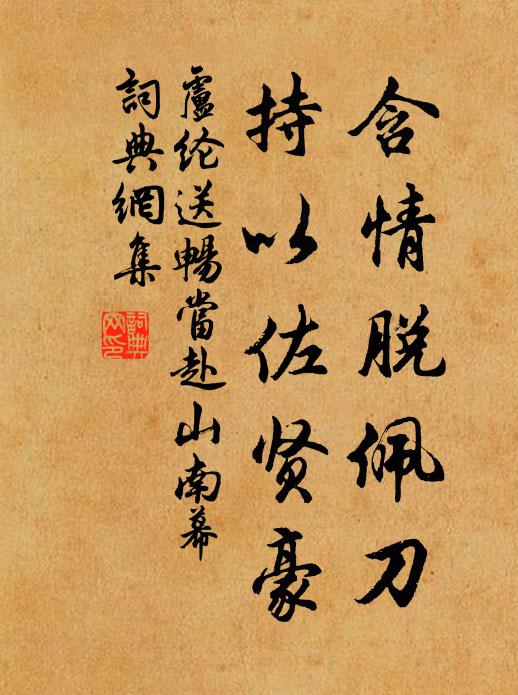 含情脱佩刀
持以佐贤豪
盧纶送暢當赴山南幕
詞典網集
詞典網印